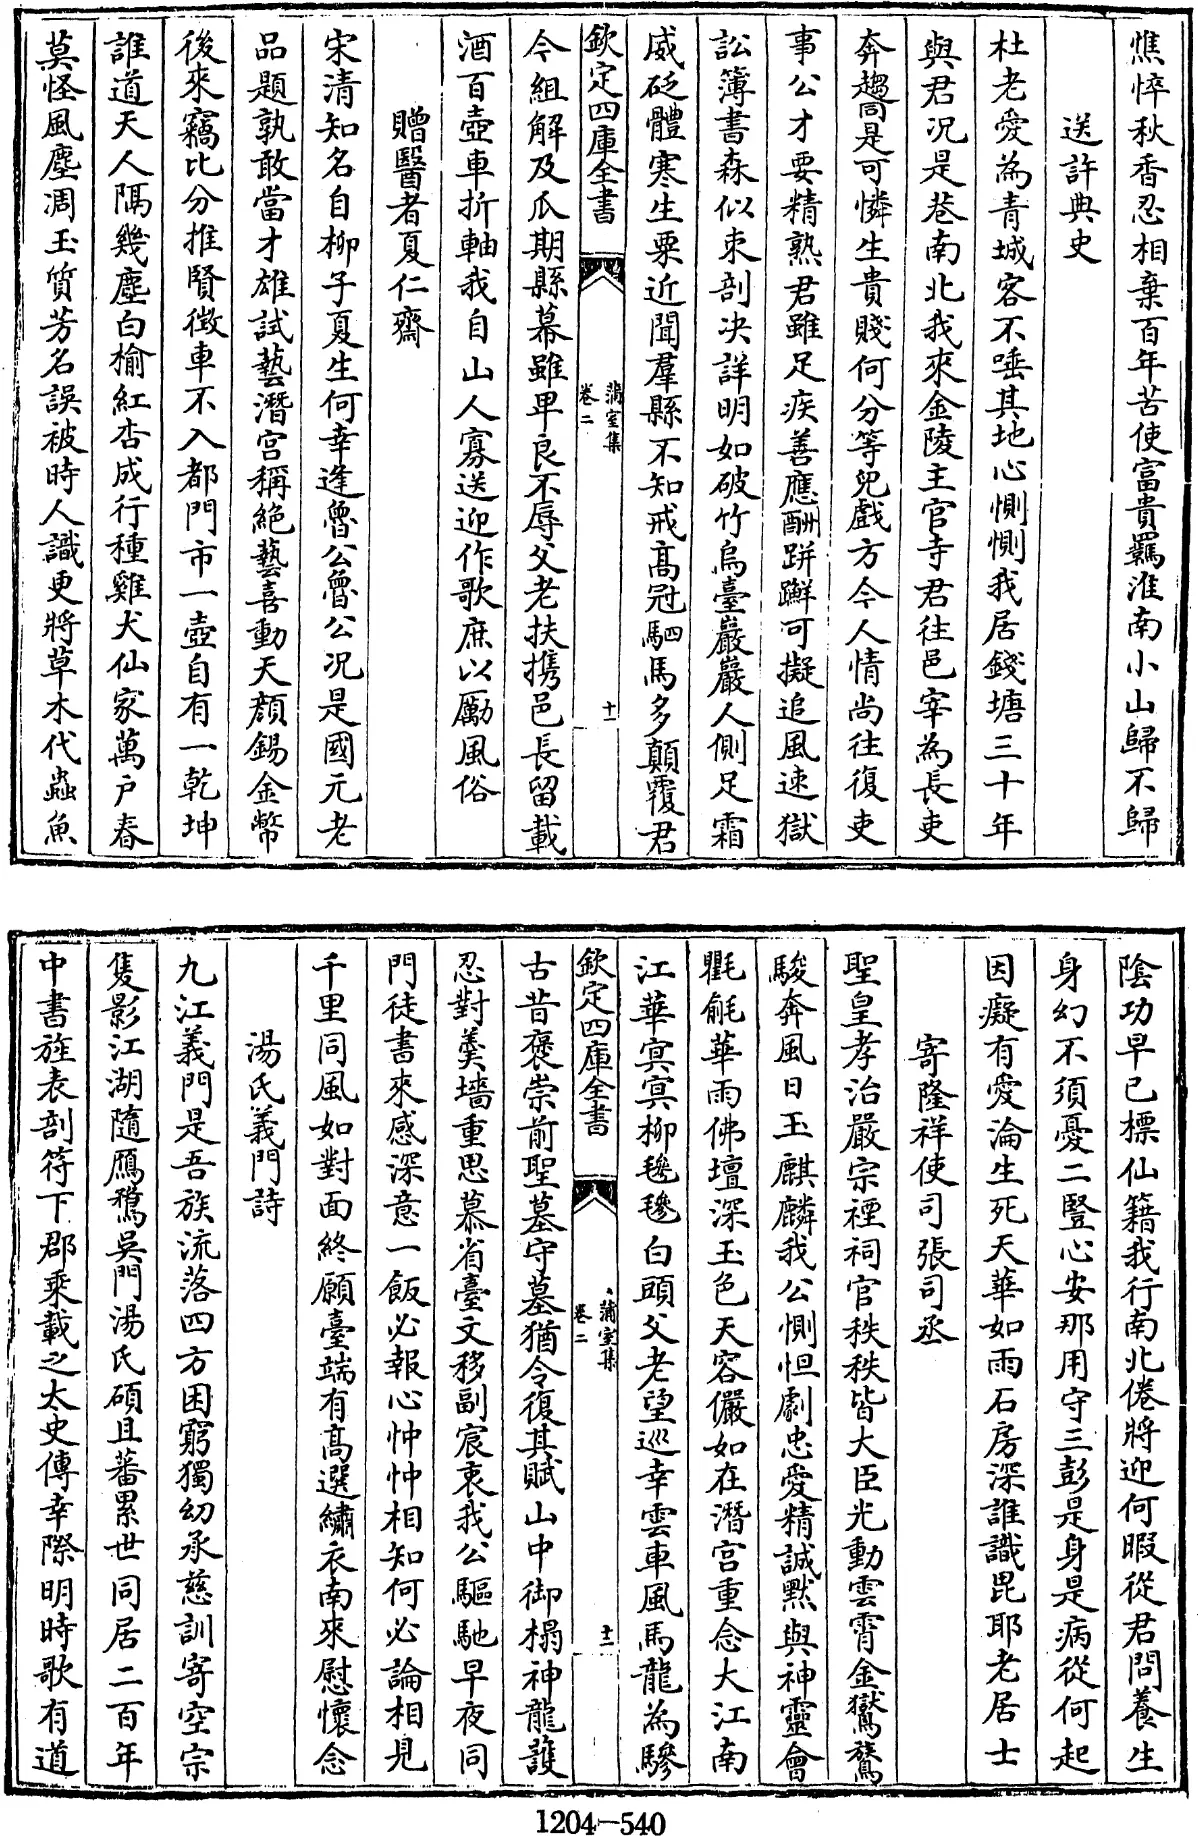 憔悴秋香忍相棄百年苦使富貴羈淮南小山歸不歸
送許典史
杜老愛為青城客不唾其地心惻惻我居錢塘三十年
與君況是巷南北我來金陵主官寺君往邑宰為長吏
奔趨同是可憐生貴賤何分等兒戲方今人情尚往復吏
事公才要精熟君雖足疾善應酬跰𨇤可擬追風速獄
訟簿書森似束剖決詳明如破竹烏臺嚴嚴人側足霜
威砭體寒生粟近聞羣縣不知戒高冠駟馬多顛覆君
欽定四庫全書
蒲室集
卷二
十一
今組解及瓜期縣幕雖卑良不辱父老扶携邑長留載
酒百壺車折軸我自山人寡送迎作歌庶以厲風俗
贈醫者夏仁齋
宋清知名自柳子夏生何幸逢魯公魯公況是國元老
品題孰敢當才雄試藝潛宮稱絶藝喜動天顔錫金幣
後來竊比分推賢徵車不入都門市一壺自有一乾坤
誰道天人隔幾塵白榆紅杏成行種雞犬仙家萬戶春
莫怪風塵凋玉質芳名誤被時人識更將草木代蟲魚
陰功早已標仙籍我行南北倦將迎何暇從君問養生
身幻不須憂二豎心安那用守三彭是身是病從何起
因癡有愛淪生死天華如雨石房深誰識毘耶老居士
寄隆祥使司張司丞
聖皇孝治嚴宗禋祠官秩秩皆大臣光動雲霄金鸑鷟
駿奔風日玉麒麟我公惻怛劇忠愛精誠黙與神靈會
氍毹華雨佛壇深玉色天容儼如在潛宮重念大江南
江華冥冥柳毿毿白頭父老望巡幸雲車風馬龍為驂
欽定四庫全書
蒲室集
卷二
十二
古昔褒崇前聖墓守墓猶令復其賦山中御榻神龍護
忍對羹墻重思慕省臺文移副宸衷我公驅馳早夜同
門徒書來感深意一飯必報心忡忡相知何必論相見
千里同風如對面終願臺端有高選繡衣南來慰懷念
湯氏義門詩
九江義門是吾族流落四方困窮獨幼承慈訓寄空宗
隻影江湖隨鴈鶩吳門湯氏碩且蕃累世同居二百年
中書旌表剖符下郡乘載之太史傳幸際明時歌有道
1204—540